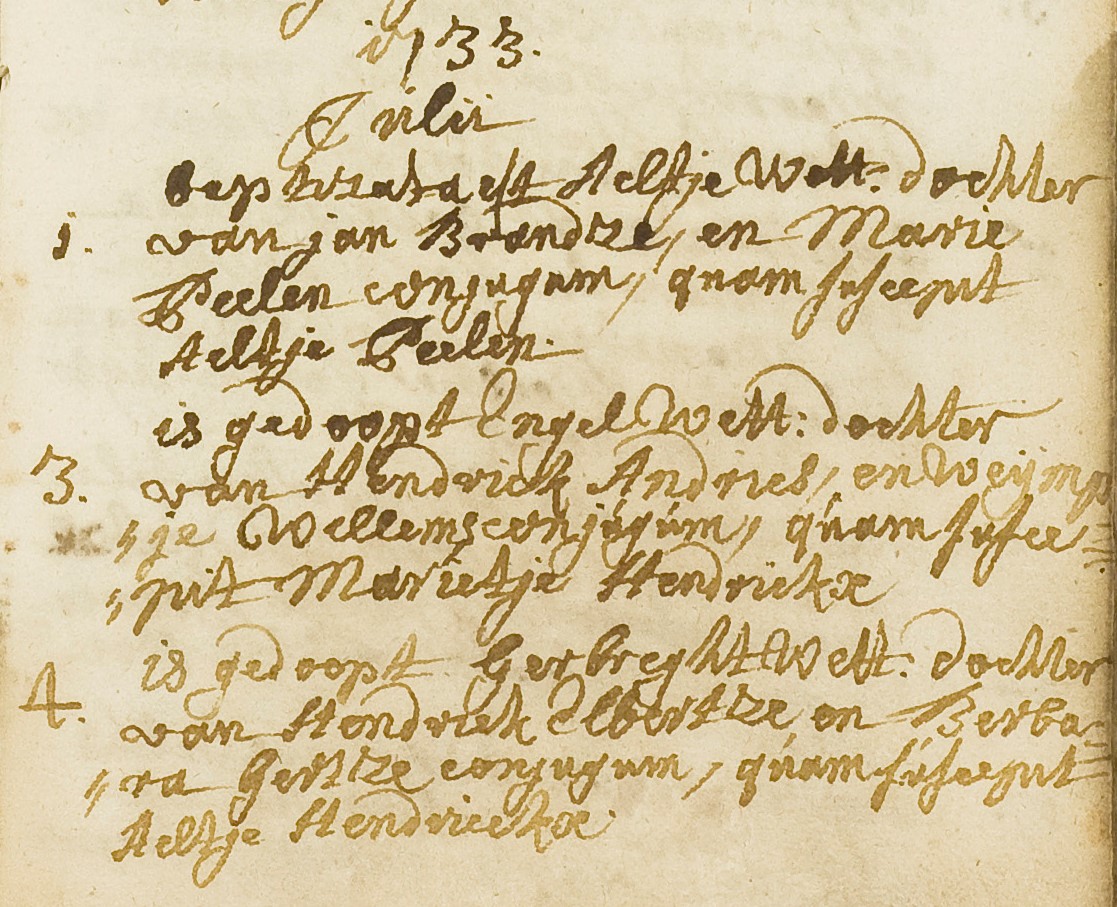 1733.
Julii
baptizata est Aeltje Wett: dochter
1. van jan Brandtze, en Marie
Peelen conjugum, quam suscepit
Aeltje Peelen.
is gedoopt Engel Wett: dochter
3. van Hendrick Andries, en Weijmp
„je Wellems conjugum, quam susce=
„pit Marietje Hendrickx
is gedoopt Gerbreght Wett: dochter
4. van Hendrick Elbertze en Berba=
„ra Gertze conjugum, quam suscepit
Aeltje Hendrickx.